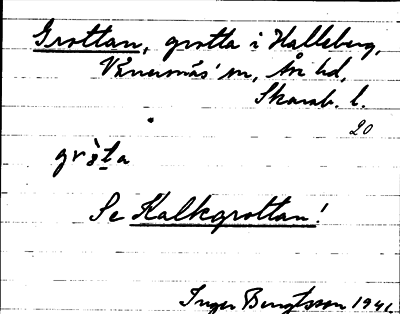 Grottan, grotta i Halleberg,
Vänersnäs' sn, Åse hd,
Skarab. l.
20
grò̱ta
Se Kalkgrottan!
Inger Bengtsson 1941.